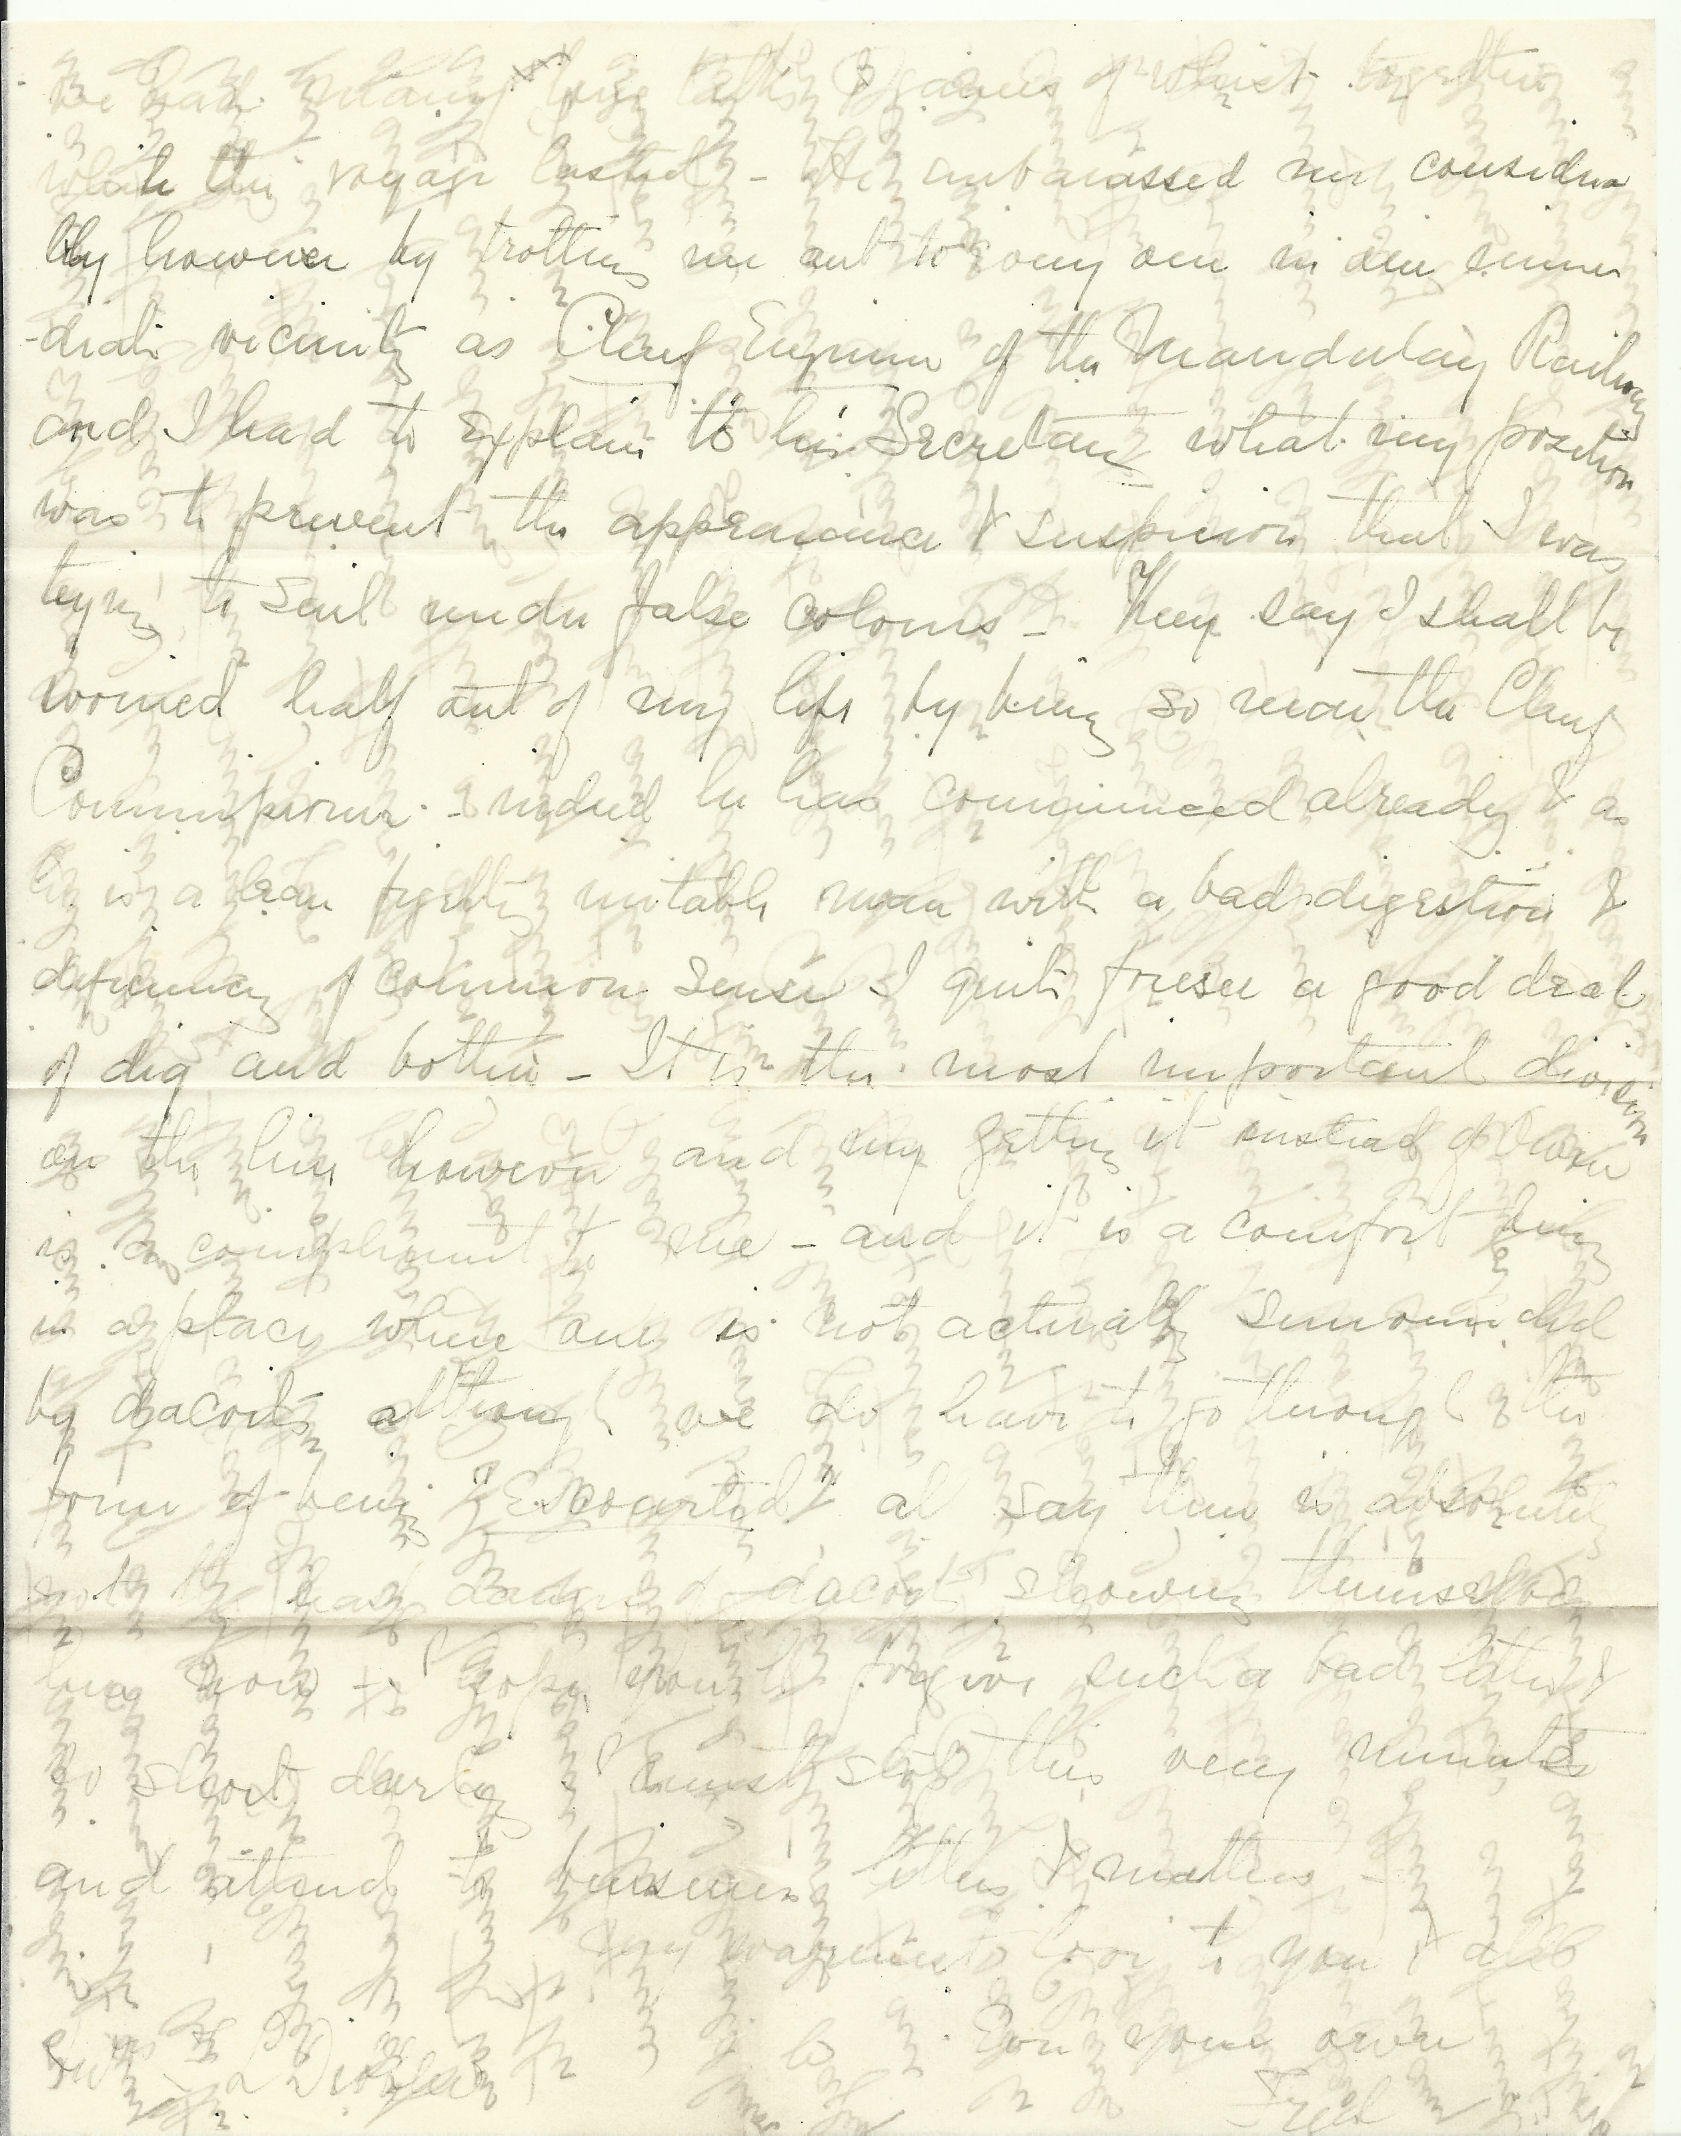 we had many long talks & games of whist together
while the voyage lasted - He embarassed me considera
bly however by trotting me out to every one in our imme
-diate vicinity as Chief Engineer of the Mandalay Railway
and I had to explain to his Secretary what my position
was to prevent the appearance & suspicion that I was
trying to sail under false colours - They say I shall be
worried half out of my life by being so near the Chief
Commissioner - indeed he has commenced already & as
he is a lean irritable man with a bad digestion &
deficiency of common sense I quite foresee a good deal
of dig and bother - It is the most important division
on the line however and my getting it instead of
is a compliment to me - and it is a comfort being
in a place where one is not actually surrounded
by dacoits although we do have to go through the
form of being "Escourted" say there is absolutely
not the danger of dacoits showing themselves
here now - I hope you'll forgive such a bad letter &
so short darling I must stop this very minute
and attend to business letters & matters -
My warmest love to you & all
Ever your own
Fred